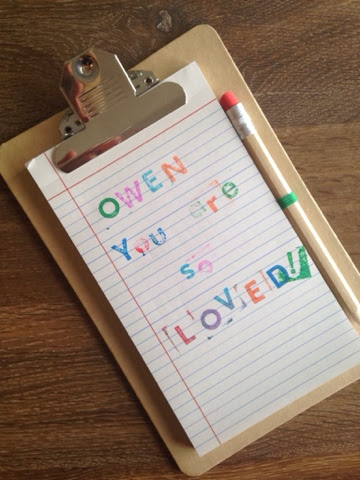 OWEN
You are
so
LOVED!!